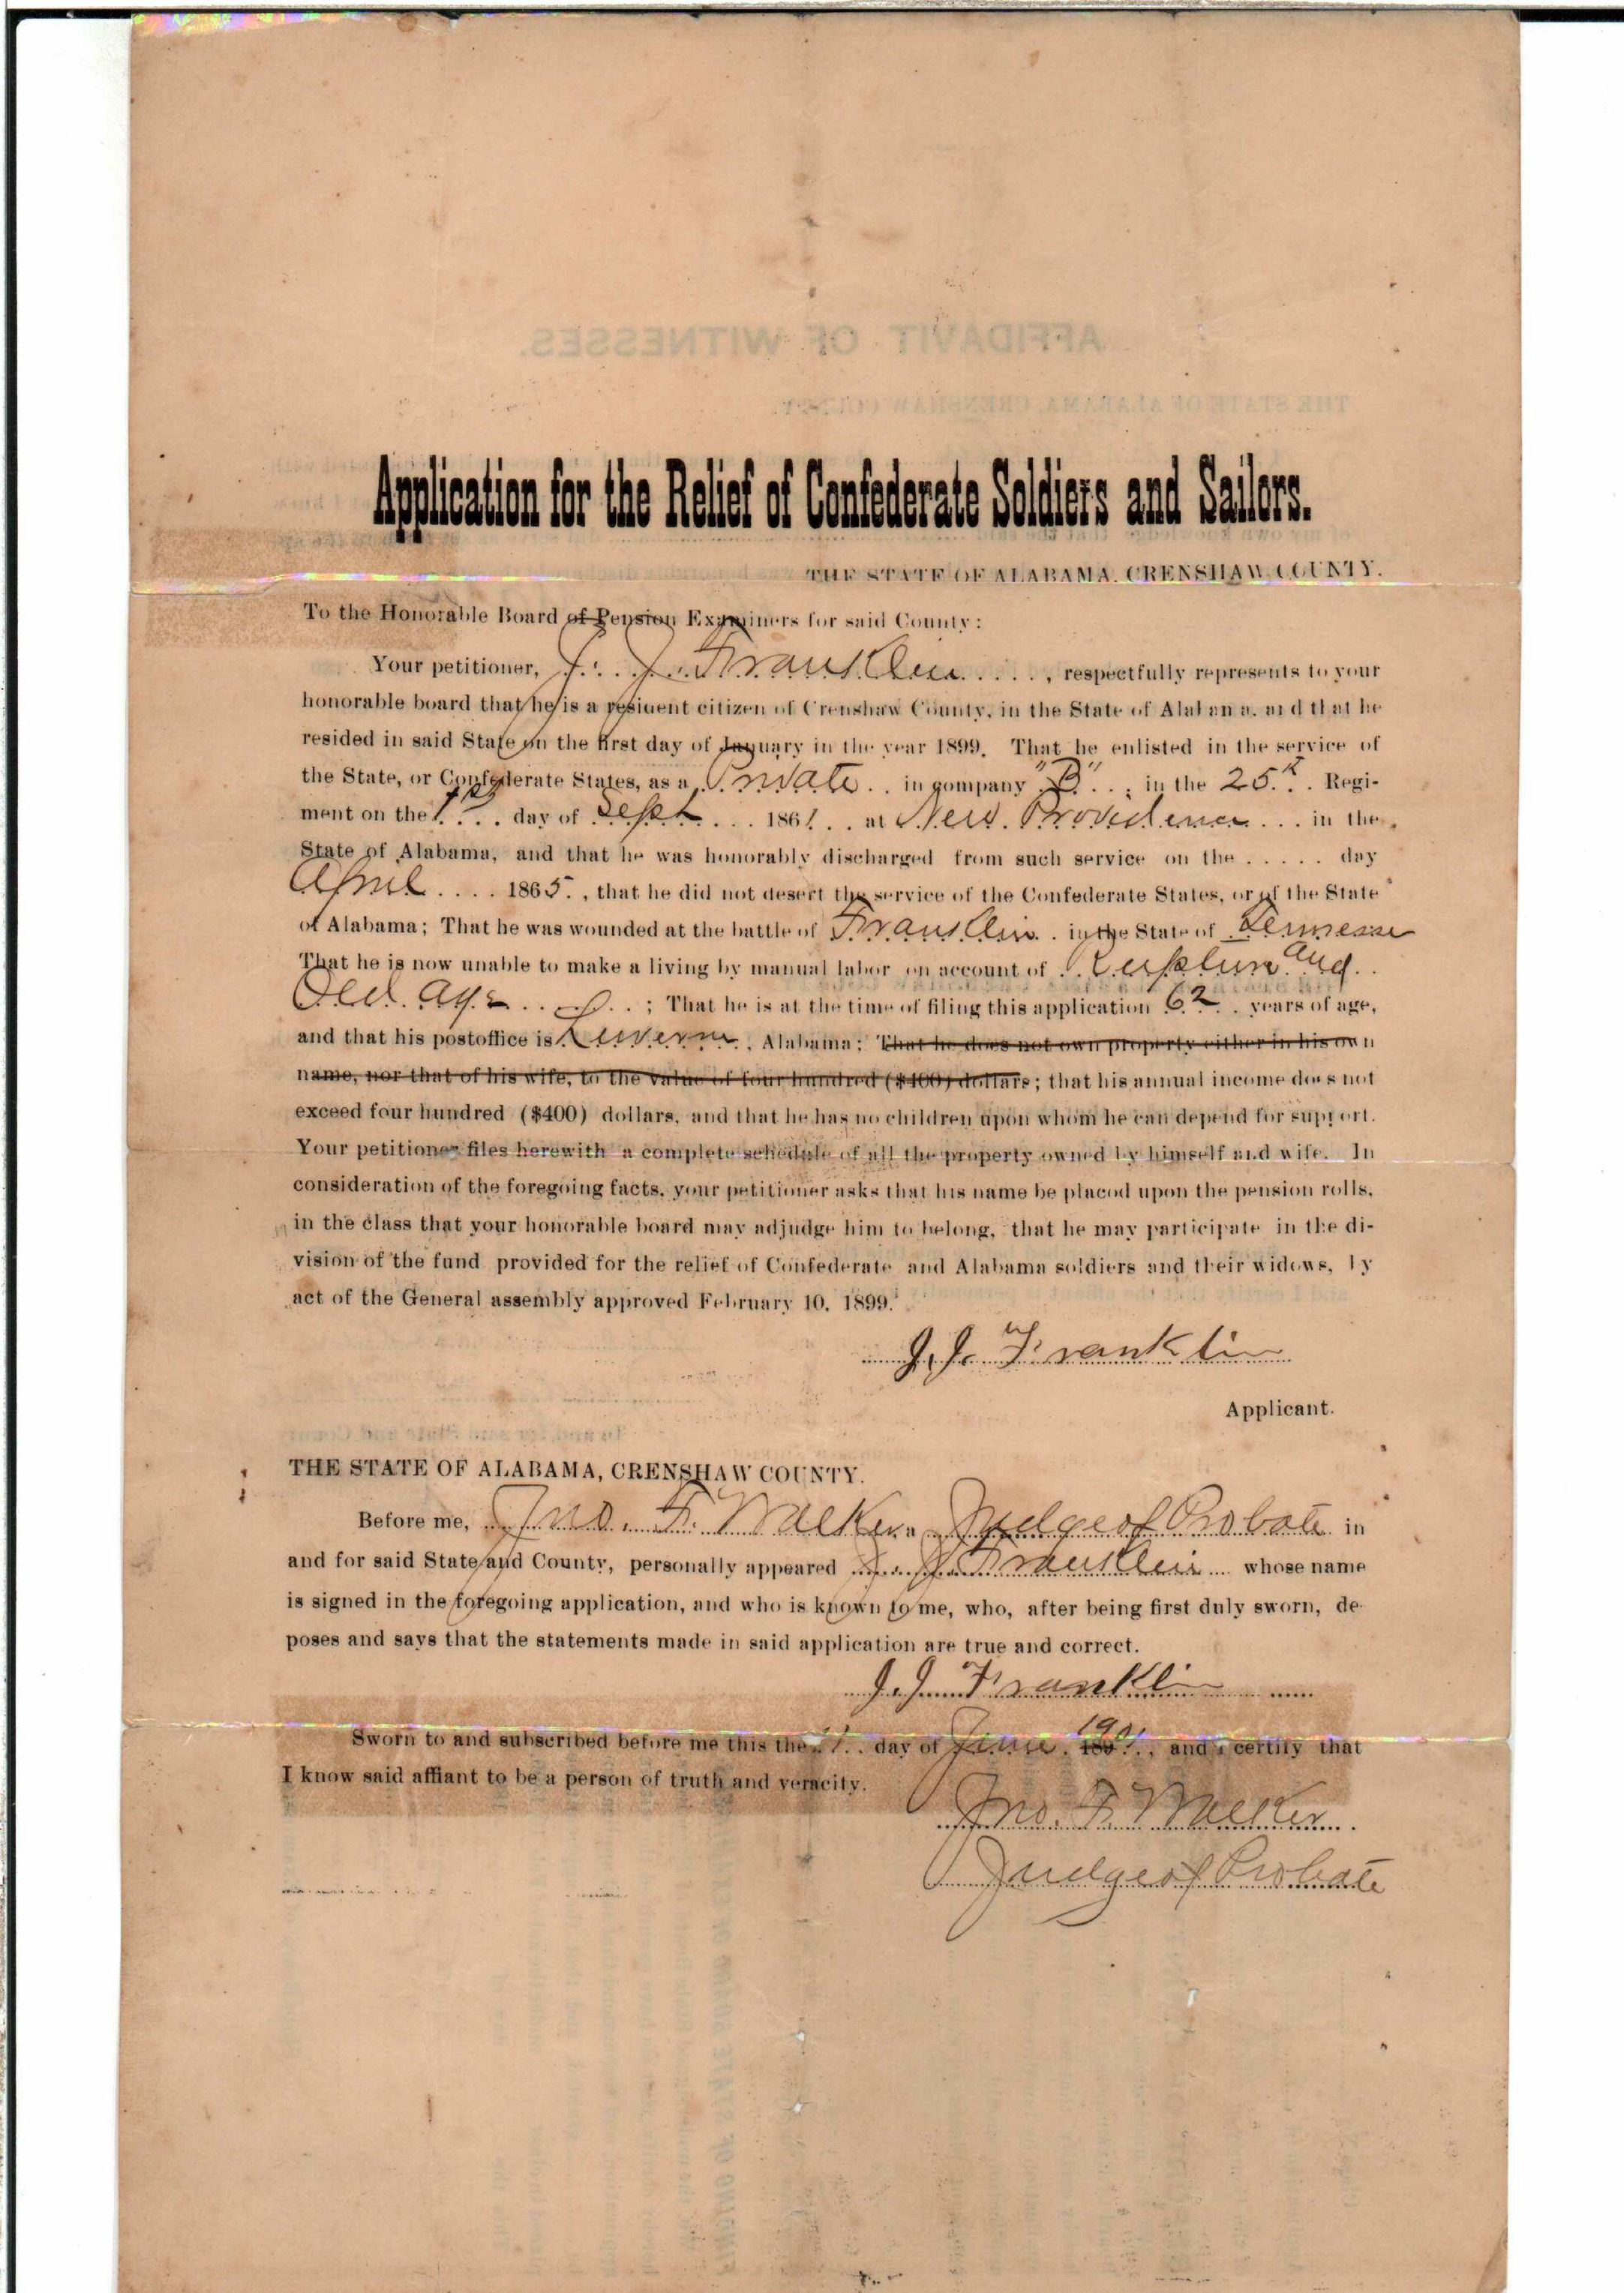 Application for the Relief of Confederate Soldiers and Sailors.
THE STATE OF ALABAMA, CRENSHAW COUNTY.
To the Honorable Board of Pension Examiners for said County:
Your petitioner, J. J. Franklin . . . . , respectfully represents to your
honorable board that he is a resident citizen of Crenshaw County, in the State of Alabama, and that he
resided in said State on the first day of January in the year 1899. That he enlisted in the service of
the State, or Confederate States, as a Private . . in company "B" . . ; in the 25th . Regi-
ment on the 1st . . day of Sept . . . 1861 . . at New Providence . . . in the
State of Alabama, and that he was honorably discharged from such service on the . . . . . day
April . . . . 1865 . , that he did not desert the service of the Confederate States, or of the State
of Alabama; That he was wounded at the battle of Franklin . in the State of Tennessee
That he is now unable to make a living by manual labor on account of . Rupture and . .
Old age . . . . ; That he is at the time of filing this application 62 . years of age,
and that his postoffice is Luverne , Alabama; That he does not own property either in his own
name, nor that of his wife, to the value of four hundred ($400) dollars; that his annual income does not
exceed four hundred ($400) dollars, and that he has no children upon whom he can depend for support.
Your petitioner files herewith a complete schedule of all the property owned by himself and wife. In
consideration of the foregoing facts, your petitioner asks that his name be placed upon the pension rolls,
in the class that your honorable board may adjudge him to belong, that he may participate in the di-
vision of the fund provided for the relief of Confederate and Alabama soldiers and their widows, by
act of the General assembly approved February 10, 1899.
J. J. Franklin
Applicant.
THE STATE OF ALABAMA, CRENSHAW COUNTY.
Before me, Jno. F. Walker a Judge of Probate in
and for said State and County, personally appeared J. J. Franklin whose name
is signed in the foregoing application, and who is known to me, who, after being first duly sworn, de-
poses and says that the statements made in said application are true and correct.
J. J. Franklin
Sworn to and subscribed before me this the day of June 1901, and I certify that
I know said affiant to be a person of truth and veracity.
Jno. F. Walker
Judge of Probate